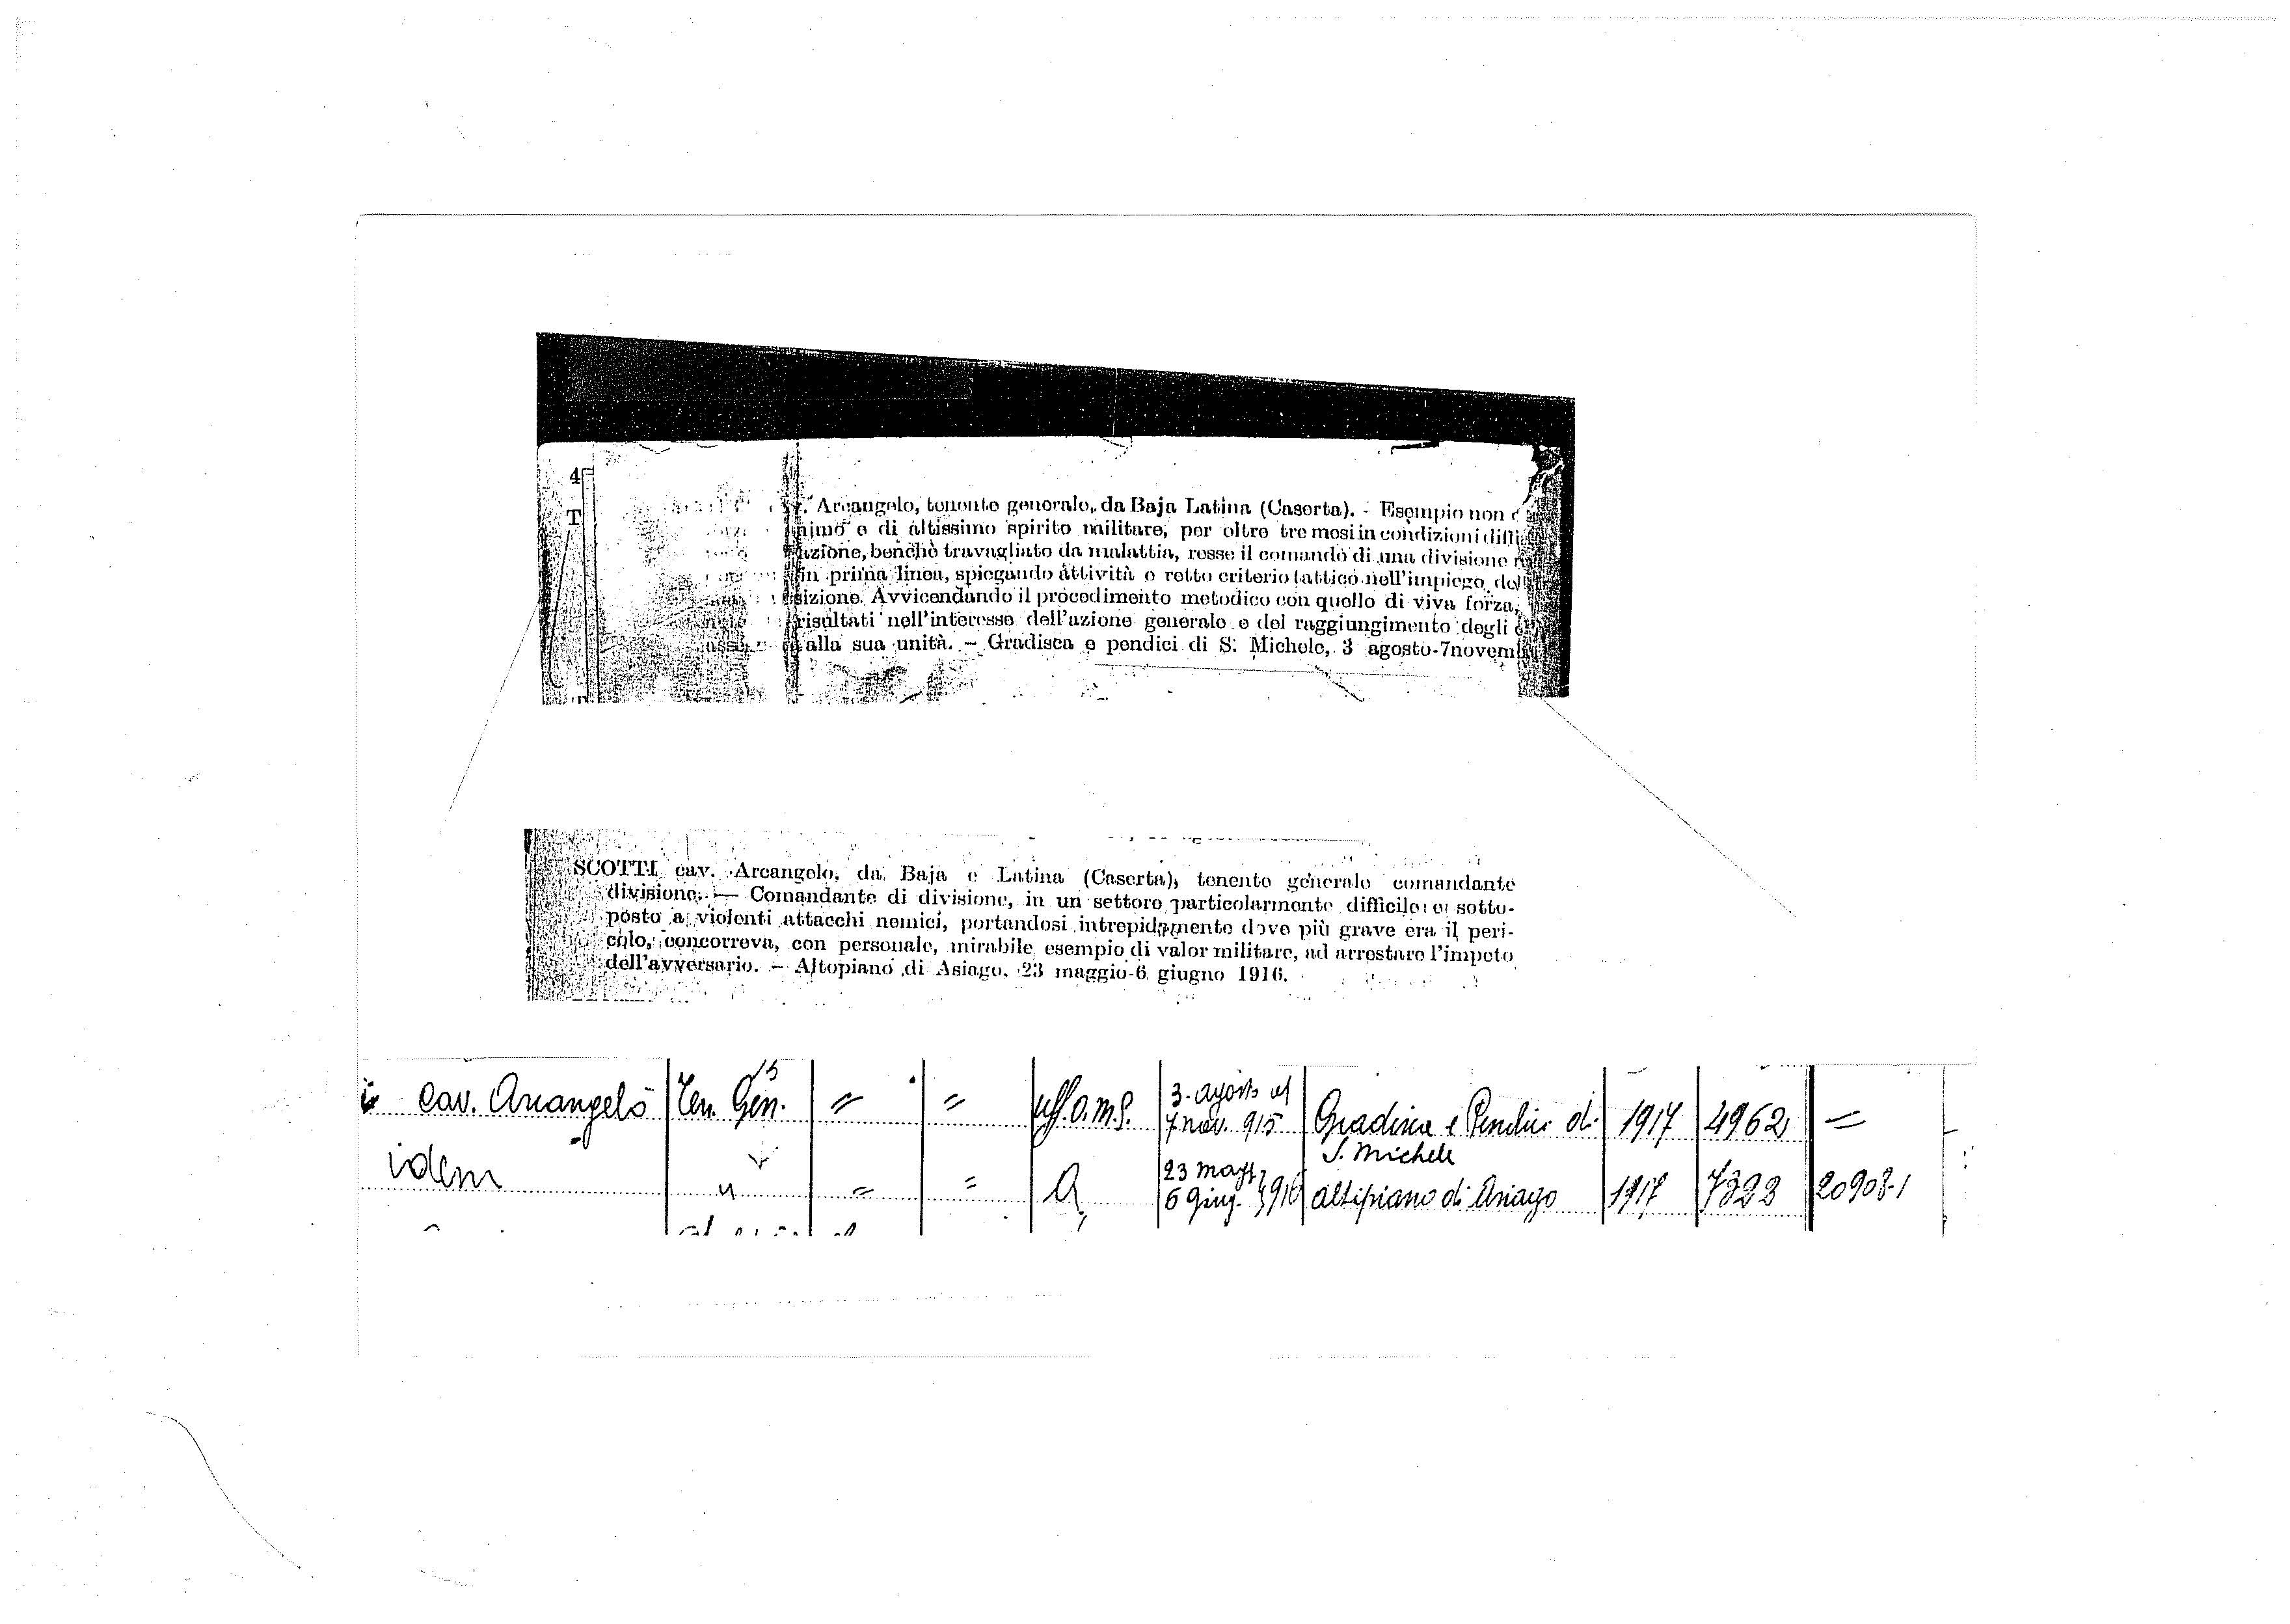 4
T
Arcangelo, tenente generale, da Baja Latina (Caserta). - Esempio non
nimo e di altissimo spirito militare, per oltre tre mesi in condizioni diffi
azione, benchè travagliato da malattia, resse il comando di una divisione
in prima linea, spiegando attività e retto criterio tattico nell'impiego del
sizione. Avvicendando il procedimento metodico con quello di viva forza,
risultati nell'interesse dell'azione generale e del raggiungimento degli
alla sua unità. - Gradisca e pendici di S. Michele, 3 agosto-7 novem
SCOTTI cav. Arcangelo, da Baja e Latina (Caserta), tenente generale comandante
divisione. — Comandante di divisione, in un settore particolarmente difficile e sotto-
posto a violenti attacchi nemici, portandosi intrepidamente dove più grave era il peri-
colo, concorreva, con personale, mirabile esempio di valor militare, ad arrestare l'impeto
dell'avversario. - Altopiano di Asiago, 23 maggio-6 giugno 1916.
cav. Arcangelo Ten. Gen. = = uff. O.M.S. 3. agosto al 7 nov. 915 Gradisca e Pendici di S. Michele 1917 4962 =
idem " = = A 23 magg. 6 Giug. 916 Altipiano di Asiago 1917 7323 20908-1